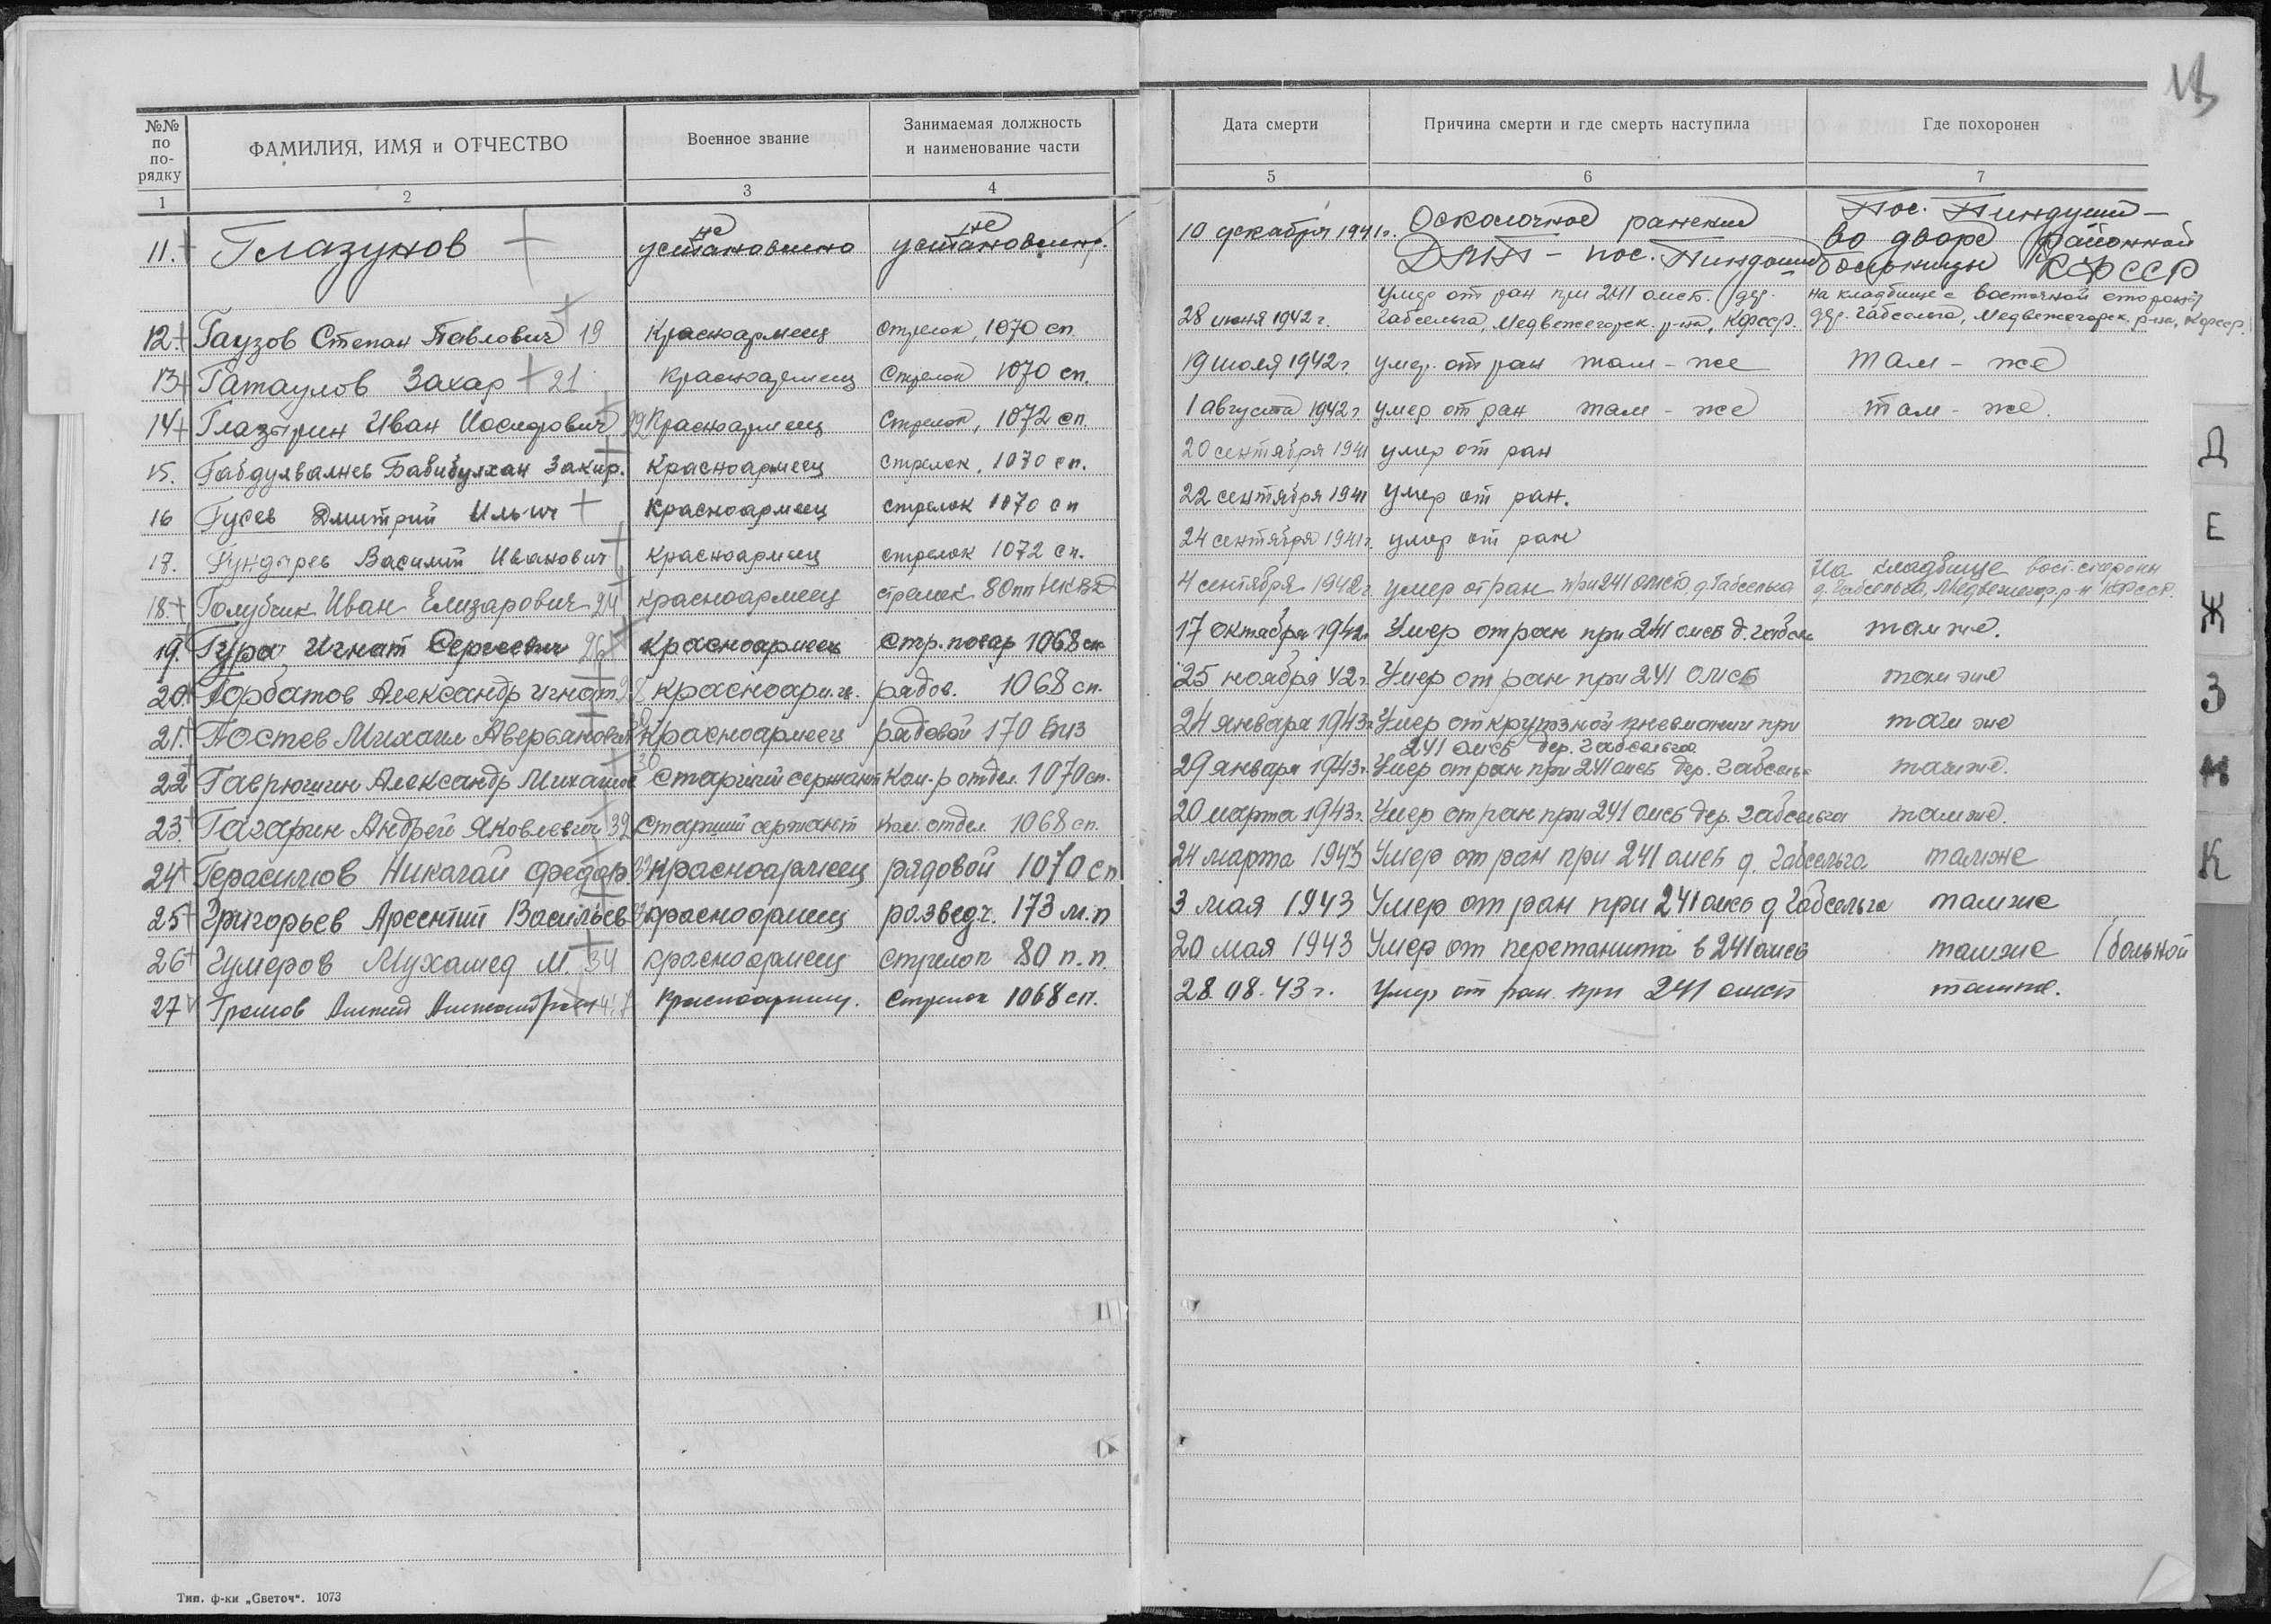 №№ по по-рядку | ФАМИЛИЯ, ИМЯ и ОТЧЕСТВО | Военное звание | Занимаемая должность и наименование части | Дата смерти | Причина смерти и где смерть наступила | Где похоронен
1 | 2 | 3 | 4 | 5 | 6 | 7
11. + Глазунов + | не установлено | не установлено. | 10 декабря 1941 г. | Осколочное ранение ДМП - пос. Пиндуши | Пос. Пиндуши - во дворе районной больницы КФССР
12. + Гаузов Степан Павлович + 19 | Красноармеец | Стрелок, 1070 сп. | 28 июня 1942 г. | умер от ран при 241 омсб. дер. Габсельга, Медвежегорск. р-на, КФССР. | на кладбище с восточной стороны дер. Габсельга, Медвежегорск. р-на, КФССР.
13 + Гатаулов Захар + 21 | Красноармеец | Стрелок 1070 сп. | 19 июля 1942 г. | умер от ран там - же | там - же
14 + Глазырин Иван | Красноармеец | Стрелок, 1072 сп. | 1 августа 1942 г. | умер от ран там - же | там - же.
15. Закир. | Красноармеец | стрелок, 1070 сп. | 20 сентября 1941 | умер от ран
16 Гусев Дмитрий Ильич + | Красноармеец | стрелок 1070 сп | 22 сентября 1941 | умер от ран.
17. Гундырев Василий Иванович + | красноармеец | стрелок 1072 сп. | 24 сентября 1941 г. | умер от ран
18 + Голубчик Иван Елизарович 24 | красноармеец | стрелок 80 пп НКВД | 4 сентября 1942 г. | умер от ран при 241 омсб д. Габсельга | На кладбище вост. стороны д. Габсельга, Медвежегор. р-н КФССР.
19. Гура Игнат Сергеевич 26 | красноармеец | стр. 1068 сп | 17 октября 1942 г. | Умер от ран при 241 омсб д. Габсе | там же.
20. Горбатов Александр Игнат. | красноарм. | рядов. 1068 сп. | 25 ноября 42 г. | Умер от ран при 241 омсб | там же
21. + Гостев Михаил Аверьянович | Красноармеец | рядовой 170 | 24 января 1943 г. | Умер от крупозной пневмании при 241 омсб дер. Габсельга | там же
22 + Гаврюшин Александр Михайлов 30 | старший сержант | Ком-р отдел. 1070 сп. | 29 января 1943 г. | Умер от ран при 241 омсб дер. Габсель | там же.
23. + Гагарин Андрей Яковлевич 39 | старший сержант | ком. отдел. 1068 сп. | 20 марта 1943 г. | Умер от ран при 241 омсб дер. Габсельга | там же.
24 + Герасимов Николай Федор. | красноармеец | рядовой 1070 сп | 24 марта 1943 | Умер от ран при 241 омсб д. Габсельга | там же
25 + Григорьев Арсентий Васильев | красноармеец | разведч. 173 м.п | 3 мая 1943 | Умер от ран при 241 омсб д Габсельга | там же
26 + Гумеров Мухамед М. + 34 | красноармеец | стрелок 80 п.п. | 20 мая 1943 | Умер от перетанита в 241 омсб | там же (больной
27 Громов | Красноармеец. | Стрелок 1068 сп. | 28.08.43 г. | Умер от ран при 241 омсб | там же.
Д
Е
Ж
З
И
К
Тип. ф-ки „Светоч“. 1073